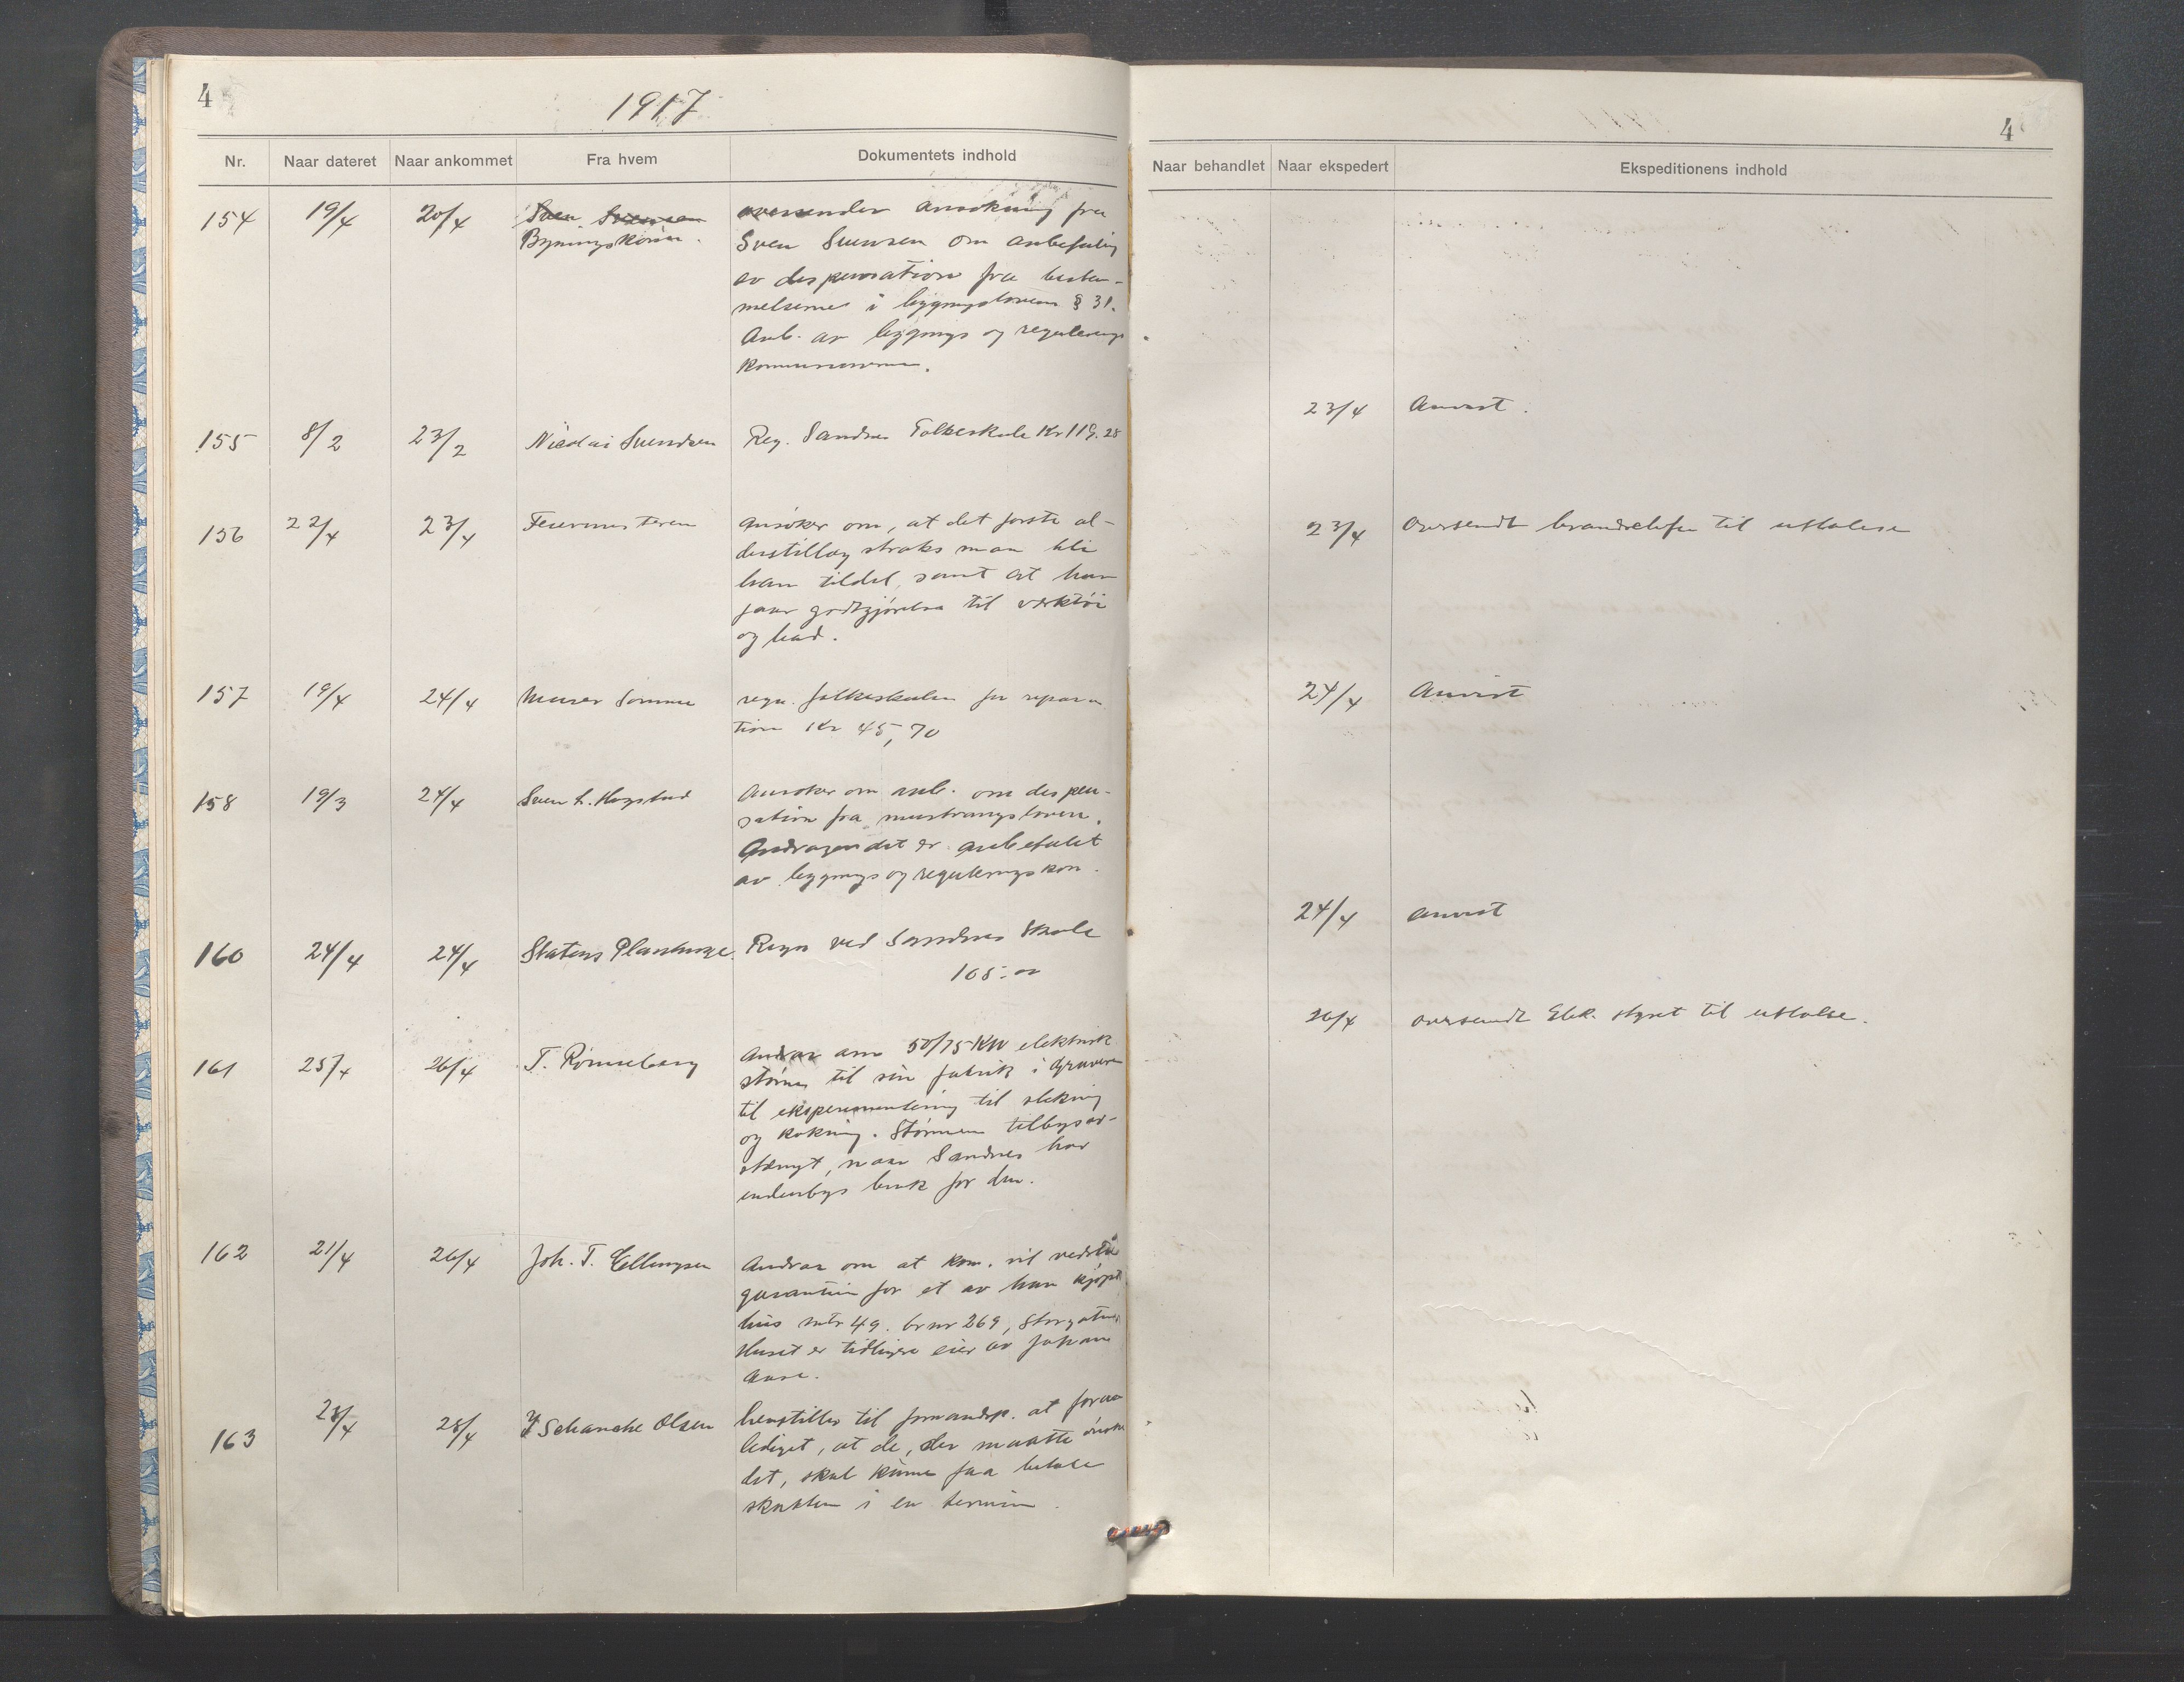 4
1917
Nr. Naar dateret Naar ankommet Fra hvem Dokumentets indhold
154 19/4 20/4 Sven Svensen oversender ansøkning fra
Bygningskom. Sven Svensen om anbefaling
av dispensation fra bestem-
melserne i bygningsloven § 31.
Anb. av bygnings og regulerings
kommissionen.
155 8/2 23/2 Nicolai Svendsen Reg. Sandnes Folkeskole Kr 119.28
156 22/4 23/4 Feiermesteren Ansøker om, at det første al-
derstillæg straks maa bli
ham tildelt, samt at han
faar godtgjørelse til verktøi
og bad.
157 19/4 24/4 Murer Sømme regn. folkeskolen for repara
tion Kr 45,70
158 19/3 24/4 Sven L. Hogstad Ansøker om anb. om dispen-
sation fra murtvangsloven.
Andragendet er anbefalet
av bygnings og reguleringskom.
160 24/4 24/4 Statens Planteskole. Regn ved Sandnes Skole
105.00
161 25/4 26/4 T. Rønneberg Andrar om 50/75 KW elektrisk
strøm til sin fabrik i Graveren
til eksperimentering til stekning
og kokning. Strømmen tilbys av-
stængt, naar Sandnes har
indenbys bruk for den.
162 21/4 26/4 Joh. T. Ellingsen Andrar om at kom. vil vedstaa
garantien for et av ham kjøpt
hus mtr 49. br nr 269, Storgaten
Huset er tidligere eiet av Johan
Aase.
163 28/4 28/4 Schanche Olsen henstiller til formandsk. at foran
lediget, at de, der maatte ønske
det, skal kunne faa betale
skatten i en termin.
4
Naar behandlet Naar ekspedert Ekspeditionens indhold
23/4 Anvist.
23/4 Oversendt brandchefen til uttalelse
24/4 Anvist
24/4 anvist
26/4 oversendt Elek. styret til uttalse.